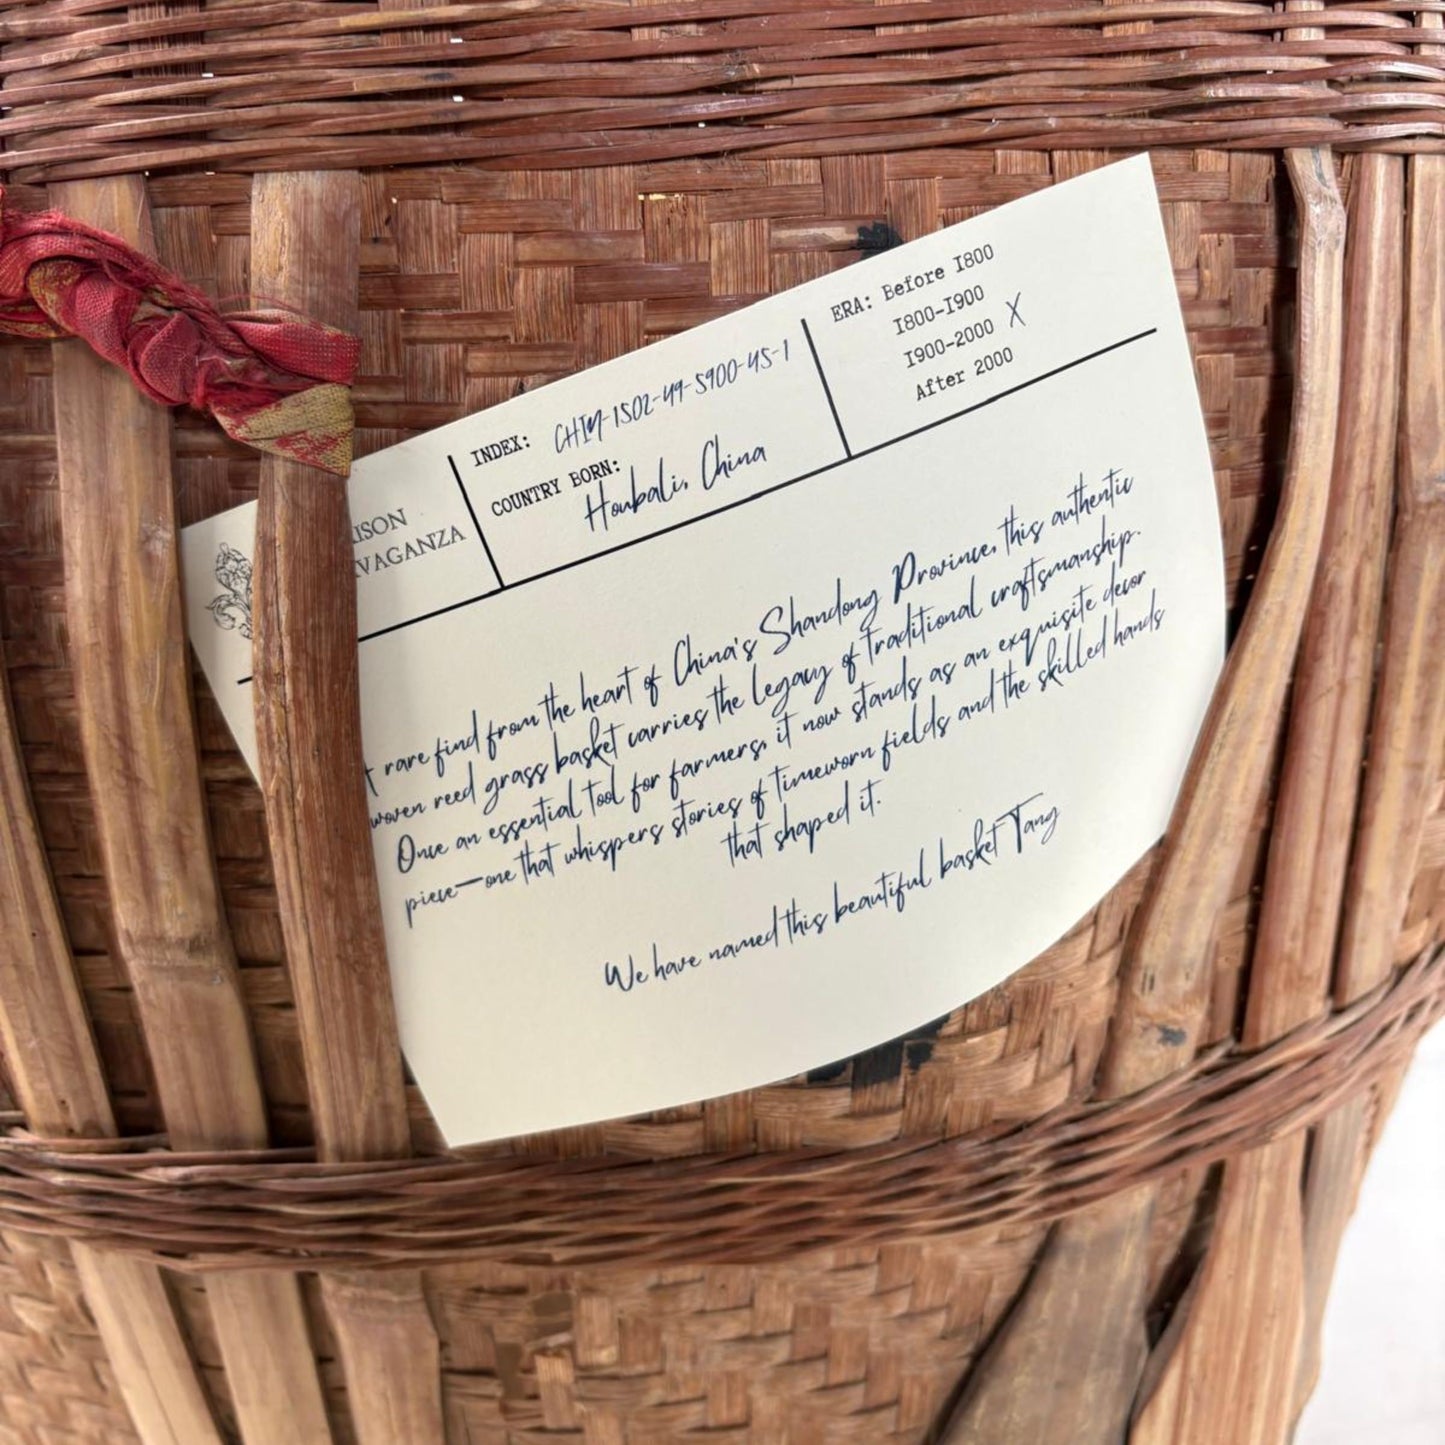 ISON
VAGANZA
INDEX: CHIN-1502-49-5900-45-1
COUNTRY BORN:
Houbali, China
ERA: Before 1800
1800-1900
1900-2000 X
After 2000
rare find from the heart of China's Shandong Province, this authentic
woven reed grass basket carries the legacy of traditional craftsmanship.
Once an essential tool for farmers, it now stands as an exquisite decor
piece—one that whispers stories of timeworn fields and the skilled hands
that shaped it.
We have named this beautiful basket Tang